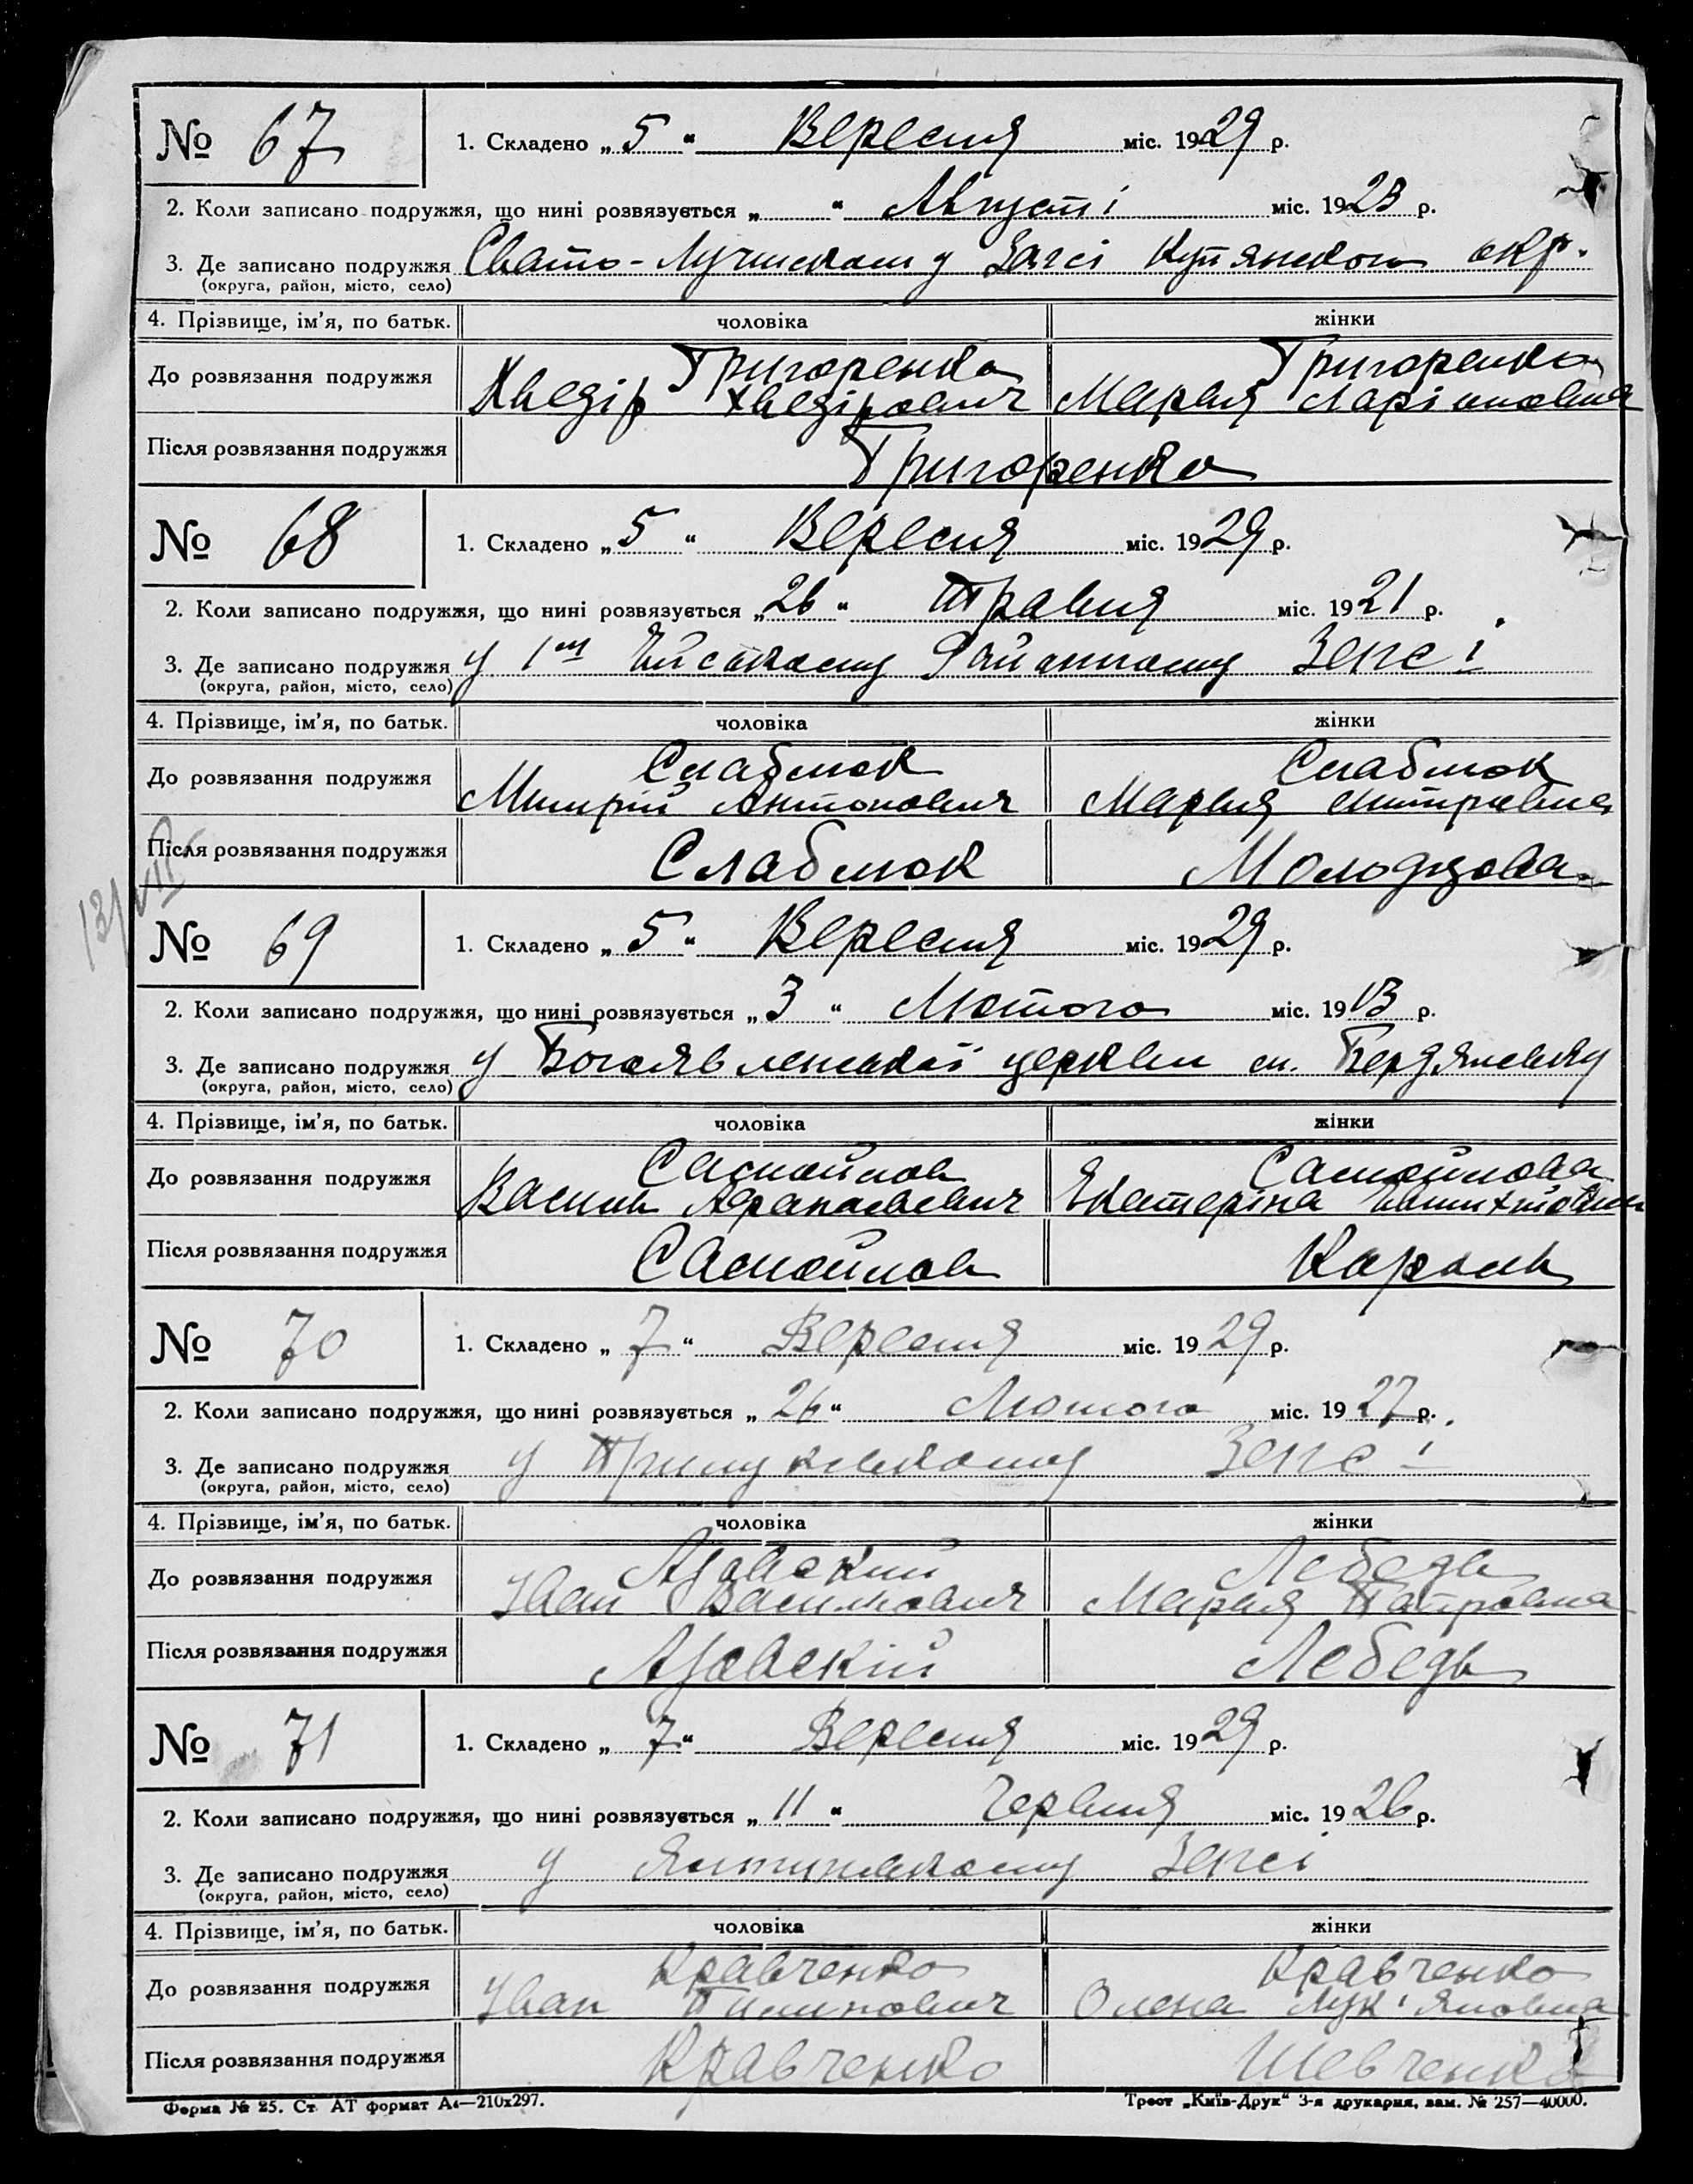 № 67
1. Складено „5“ Вересня міс. 1929 р.
2. Коли записано подружжя, що нині розвязується „ “ Августі міс. 1923 р.
3. Де записано подружжя Свато-Лучинском у Загсі Купянского окр.
(округа, район, місто, село)
4. Прізвище, ім’я, по батьк. чоловіка жінки
Григоренко Григоренко
До розвязання подружжя Хведір Хведірович Марыя Ларіоновна
Після розвязання подружжя Григоренко
№ 68
1. Складено „5“ Вересня міс. 1929 р.
2. Коли записано подружжя, що нині розвязується „26“ Травня міс. 1921 р.
3. Де записано подружжя у 1м Районному Загсі
(округа, район, місто, село)
4. Прізвище, ім’я, по батьк. чоловіка жінки
Слабмок Слабмок
До розвязання подружжя Антонович Марыя
Після розвязання подружжя Слабмок Молодцова
13/VII
№ 69
1. Складено „5“ Вересня міс. 1929 р.
2. Коли записано подружжя, що нині розвязується „3“ Лютого міс. 1913 р.
3. Де записано подружжя у Богоявленской церкви
(округа, район, місто, село)
4. Прізвище, ім’я, по батьк. чоловіка жінки
Самойлов Самойлова
До розвязання подружжя Василь Афанасьевич Екатеріна
Після розвязання подружжя Самойлов
№ 70
1. Складено „7“ Вересня міс. 1929 р.
2. Коли записано подружжя, що нині розвязується „26“ Лютого міс. 1927 р.
3. Де записано подружжя у Прилукському Загсі
(округа, район, місто, село)
4. Прізвище, ім’я, по батьк. чоловіка жінки
Азовский Лебедь
До розвязання подружжя Іван Василькович Марыя Петровна
Після розвязання подружжя Азовскій Лебедь
№ 71
1. Складено „7“ Вересня міс. 1929 р.
2. Коли записано подружжя, що нині розвязується „11“ Червня міс. 1926 р.
3. Де записано подружжя у Загсі
(округа, район, місто, село)
4. Прізвище, ім’я, по батьк. чоловіка жінки
Кравченко Кравченко
До розвязання подружжя Іван Пилипович Олена Лук’яновна
Після розвязання подружжя Кравченко Шевченко
Форма № 25. Ст. АТ формат А4—210х297. Трест „Київ-Друк“ 3-я друкарня, зам. № 257—40000.